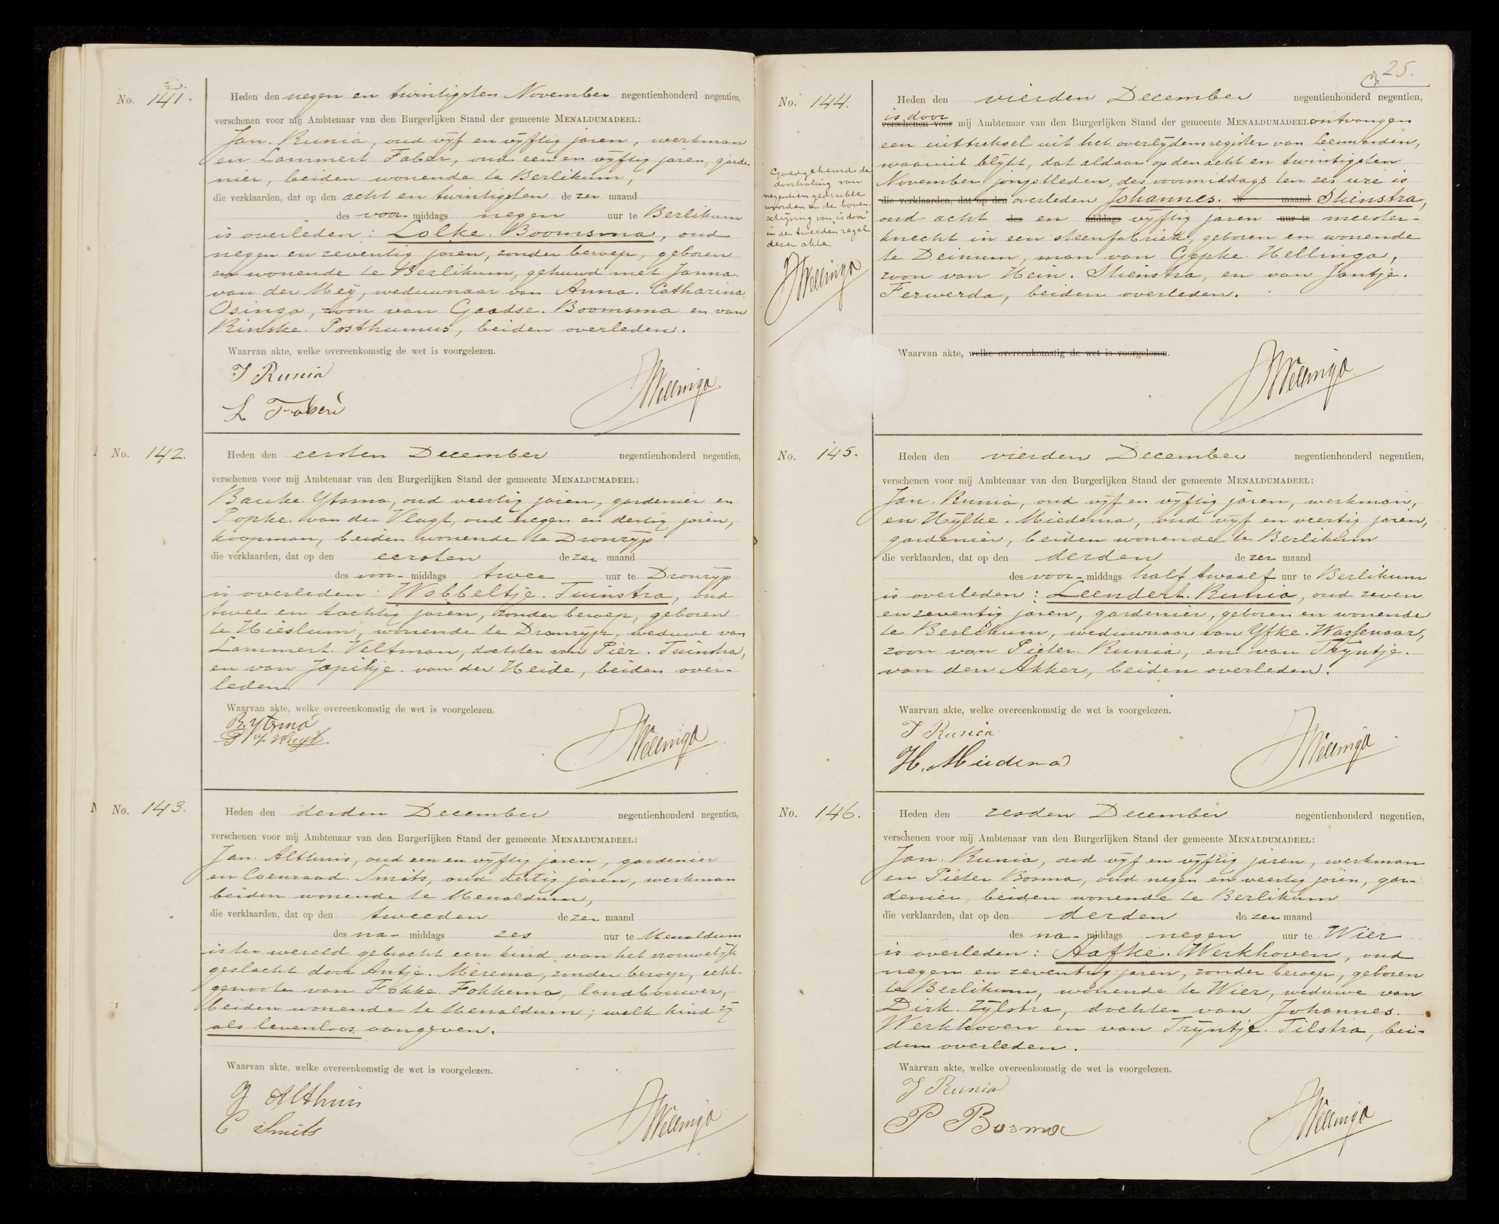 No. 141.
Heden den negen en twintigsten November negentienhonderd negentien,
verschenen voor mij Ambtenaar van den Burgerlijken Stand der gemeente MENALDUMADEEL:
Jan Runia, oud vijf en vijftig jaren, werkman
en Lammert Faber, oud een en vijftig jaren, garde-
nier, beiden wonende te Berlikum,
die verklaarden, dat op den acht en twintigsten dezer maand
des voor middags negen uur te Berlikum
is overleden: Lolke Boomsma, oud
negen en zeventig jaren, zonder beroep, geboren
en wonende te Berlikum, gehuwd met Janna
van der Meij, weduwnaar van Anna Catharina
Osinga, zoon van Goodse Boomsma en van
Rinske Posthumus, beiden overleden.
Waarvan akte, welke overeenkomstig de wet is voorgelezen.
J Runia
L Faber
JWillinga
No. 142.
Heden den eersten December negentienhonderd negentien,
verschenen voor mij Ambtenaar van den Burgerlijken Stand der gemeente MENALDUMADEEL:
Bauke Ytsma, oud veertig jaren, gardenier en
Popke van der Vlugt, oud negen en dertig jaren,
koopman, beiden wonende te Dronrijp
die verklaarden, dat op den eersten dezer maand
des voor- middags twee uur te Dronrijp
is overleden: Wobbeltje Tuinstra, oud
twee en tachtig jaren, zonder beroep, geboren
te Hieslum, wonende te Dronrijp, weduwe van
Lammert Veltman, dochter van Pier Tuinstra,
en van Japikje van der Heide, beiden over-
leden
Waarvan akte, welke overeenkomstig de wet is voorgelezen.
B. Ytsma
P v d Vlugt
JWillinga
No. 143.
Heden den derden December negentienhonderd negentien,
verschenen voor mij Ambtenaar van den Burgerlijken Stand der gemeente MENALDUMADEEL:
Jan Althuis, oud een en vijftig jaren, gardenier
en Coenraad Smits, oud dertig jaren, werkman
beiden wonende te Menaldum,
die verklaarden, dat op den tweeden dezer maand
des na- middags zes uur te Menaldum
is ter wereld gebracht een kind van het vrouwelijk
geslacht door Antje Miedema, zonder beroep, echt-
genoote van Fokke Fokkema, landbouwer,
beiden wonende te Menaldum; welk kind zij
als levenloos aangeven.
Waarvan akte, welke overeenkomstig de wet is voorgelezen.
J Althuis
C Smits
JWillinga
25.
No. 144.
Heden den vierden December negentienhonderd negentien,
is door
verschenen voor mij Ambtenaar van den Burgerlijken Stand der gemeente MENALDUMADEEL ontvangen
een uittreksel uit het overlijdensregister van Leeuwarden,
waaruit blijkt, dat aldaar op den acht en twintigsten
November jongstleden, des voormiddags ten zes ure is
die verklaarden, dat op den overleden Johannes de maand Stienstra,
oud acht des en middags vijftig jaren uur te meester-
knecht in een steenfabriek, geboren en wonende
te Deinum, man van Gepke Hellinga,
zoon van Hein Stienstra, en van Jantje
Ferwerda, beiden overleden.
Goedgekeurd de
doorhaling van
negentien gedrukte
woorden en de boven-
schrijving van "is door"
in den tweeden regel
dezer akte
JWillinga
Waarvan akte, welke overeenkomstig de wet is voorgelezen.
JWillinga
No. 145.
Heden den vierden December negentienhonderd negentien,
verschenen voor mij Ambtenaar van den Burgerlijken Stand der gemeente MENALDUMADEEL:
Jan Runia, oud vijf en vijftig jaren, werkman,
en Hylke Miedema, oud vijf en veertig jaren,
gardenier, beiden wonende te Berlikum
die verklaarden, dat op den derden dezer maand
des voor- middags half twaalf uur te Berlikum
is overleden: Leendert Runia, oud zeven
en zeventig jaren, gardenier, geboren en wonende
te Berlikum, weduwnaar van Yfke Wassenaar,
zoon van Pieter Runia, en van Trijntje
van den Akker, beiden overleden.
Waarvan akte, welke overeenkomstig de wet is voorgelezen.
J Runia
H. Miedema
JWillinga
No. 146.
Heden den zesden December negentienhonderd negentien,
verschenen voor mij Ambtenaar van den Burgerlijken Stand der gemeente MENALDUMADEEL:
Jan Runia, oud vijf en vijftig jaren, werkman
en Pieter Bosma, oud negen en veertig jaren, gar-
denier, beiden wonende te Berlikum
die verklaarden, dat op den derden dezer maand
des na- middags negen uur te Wier
is overleden: Aafke Werkhoven, oud
negen en zeventig jaren, zonder beroep, geboren
te Berlikum, wonende te Wier, weduwe van
Dirk Zijlstra, dochter van Johannes
Werkhoven en van Trijntje Tilstra, bei-
den overleden.
Waarvan akte, welke overeenkomstig de wet is voorgelezen.
J Runia
P Bosma
JWillinga